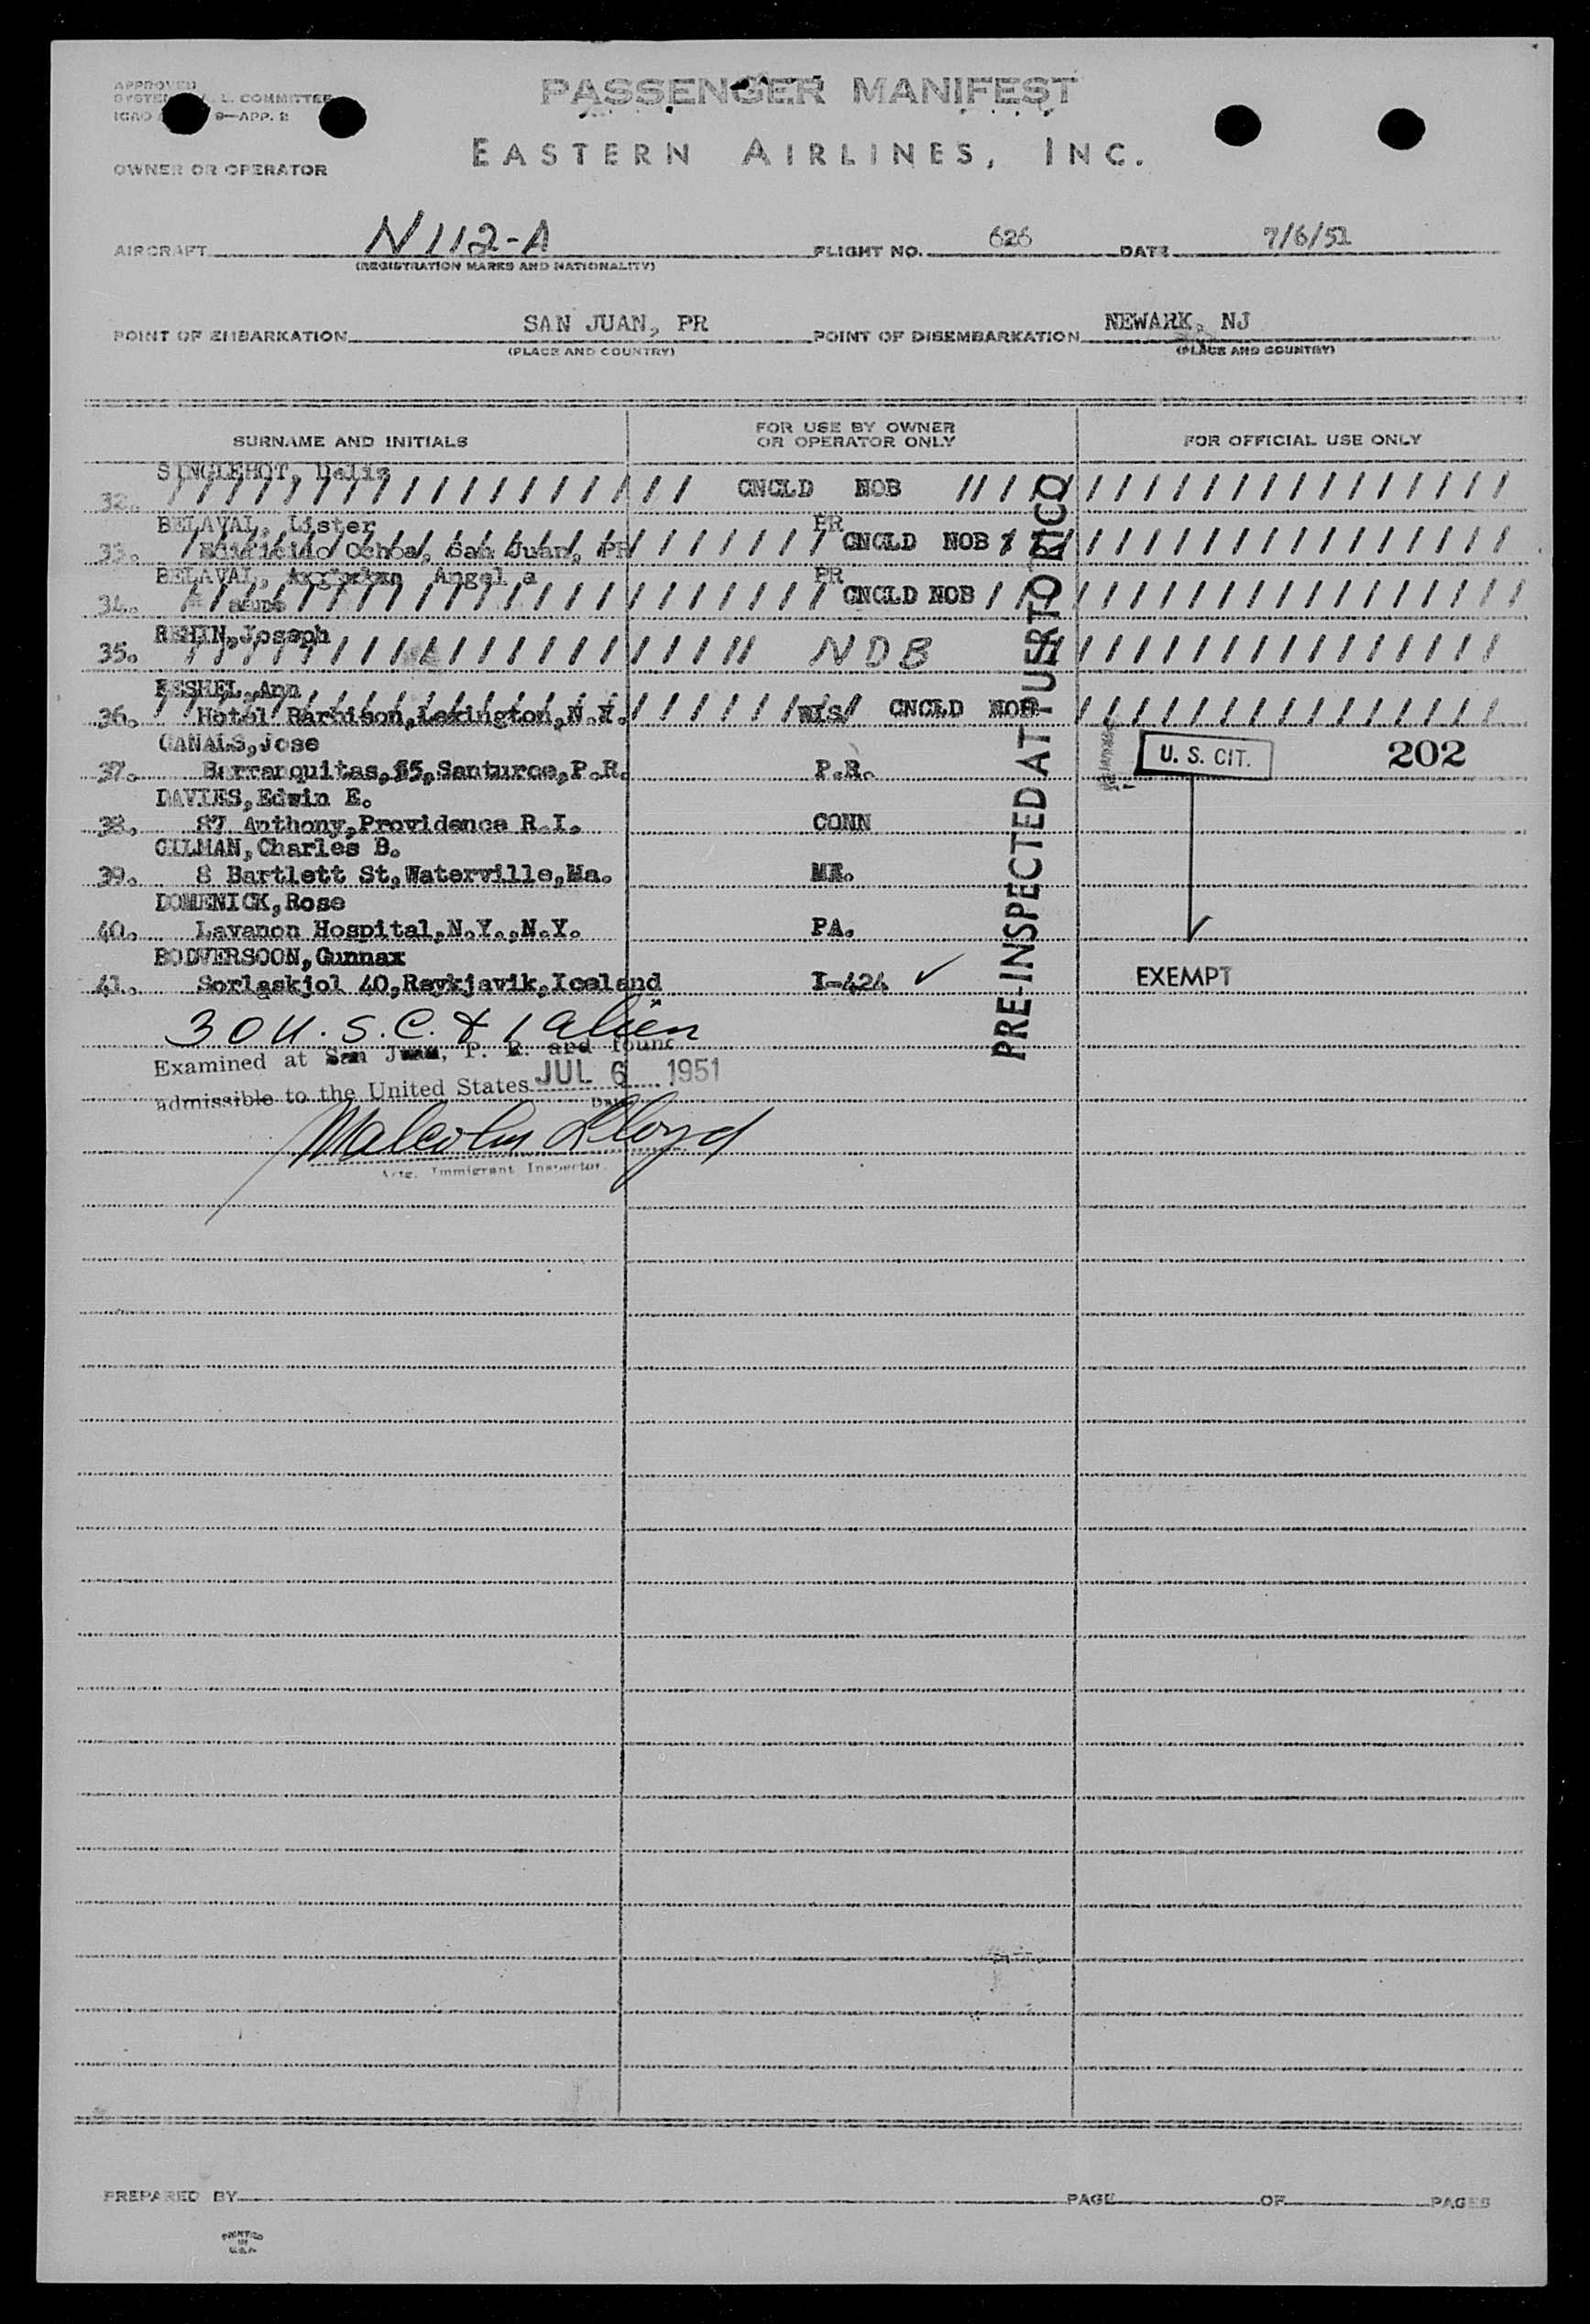 APPROVED
L. COMMITTEE
9—APP. 2
PASSENGER MANIFEST
EASTERN AIRLINES, INC.
OWNER OR OPERATOR
AIRCRAFT N112-A FLIGHT NO. 626 DATE 7/6/51
(REGISTRATION MARKS AND NATIONALITY)
POINT OF EMBARKATION SAN JUAN, PR POINT OF DISEMBARKATION NEWARK, NJ
(PLACE AND COUNTRY) (PLACE AND COUNTRY)
SURNAME AND INITIALS FOR USE BY OWNER OR OPERATOR ONLY FOR OFFICIAL USE ONLY
SINGLEHOT,
32. CNCLD NOB
BELAVAL, Lister PR
33. Edificio Ochoa, San Juan, PR CNCLD NOB
BELAVAL, Angel a PR
34. same CNCLD NOB
Joseph
35. NOB
Ann
36. Hotel Barbison,Lexington,N.Y. WIS CNCLD NOB
CANALS,Jose
37. Barranquitas,#5,Santurce,P.R. P.R. U. S. CIT. 202
DAVIES,Edwin E.
38. 87 Anthony,Providence R.I. CONN
GILMAN,Charles B.
39. 8 Bartlett St,Waterville,Ma. ME.
DOMENICK,Rose
40. Lavanon Hospital,N.Y.,N.Y. PA.
BODVERSOON,Gunnax
41. Sorlaskjol 40,Reykjavik,Iceland I-424 ✓ EXEMPT
PRE-INSPECTED AT PUERTO RICO
30 U.S.C. & 1 alien
Examined at San Juan, P. R. and found
admissible to the United States JUL 6 1951
Date
Malcolm Lloyd
Actg. Immigrant Inspector.
PREPARED BY PAGE OF PAGES
PRINTED
IN
U.S.A.